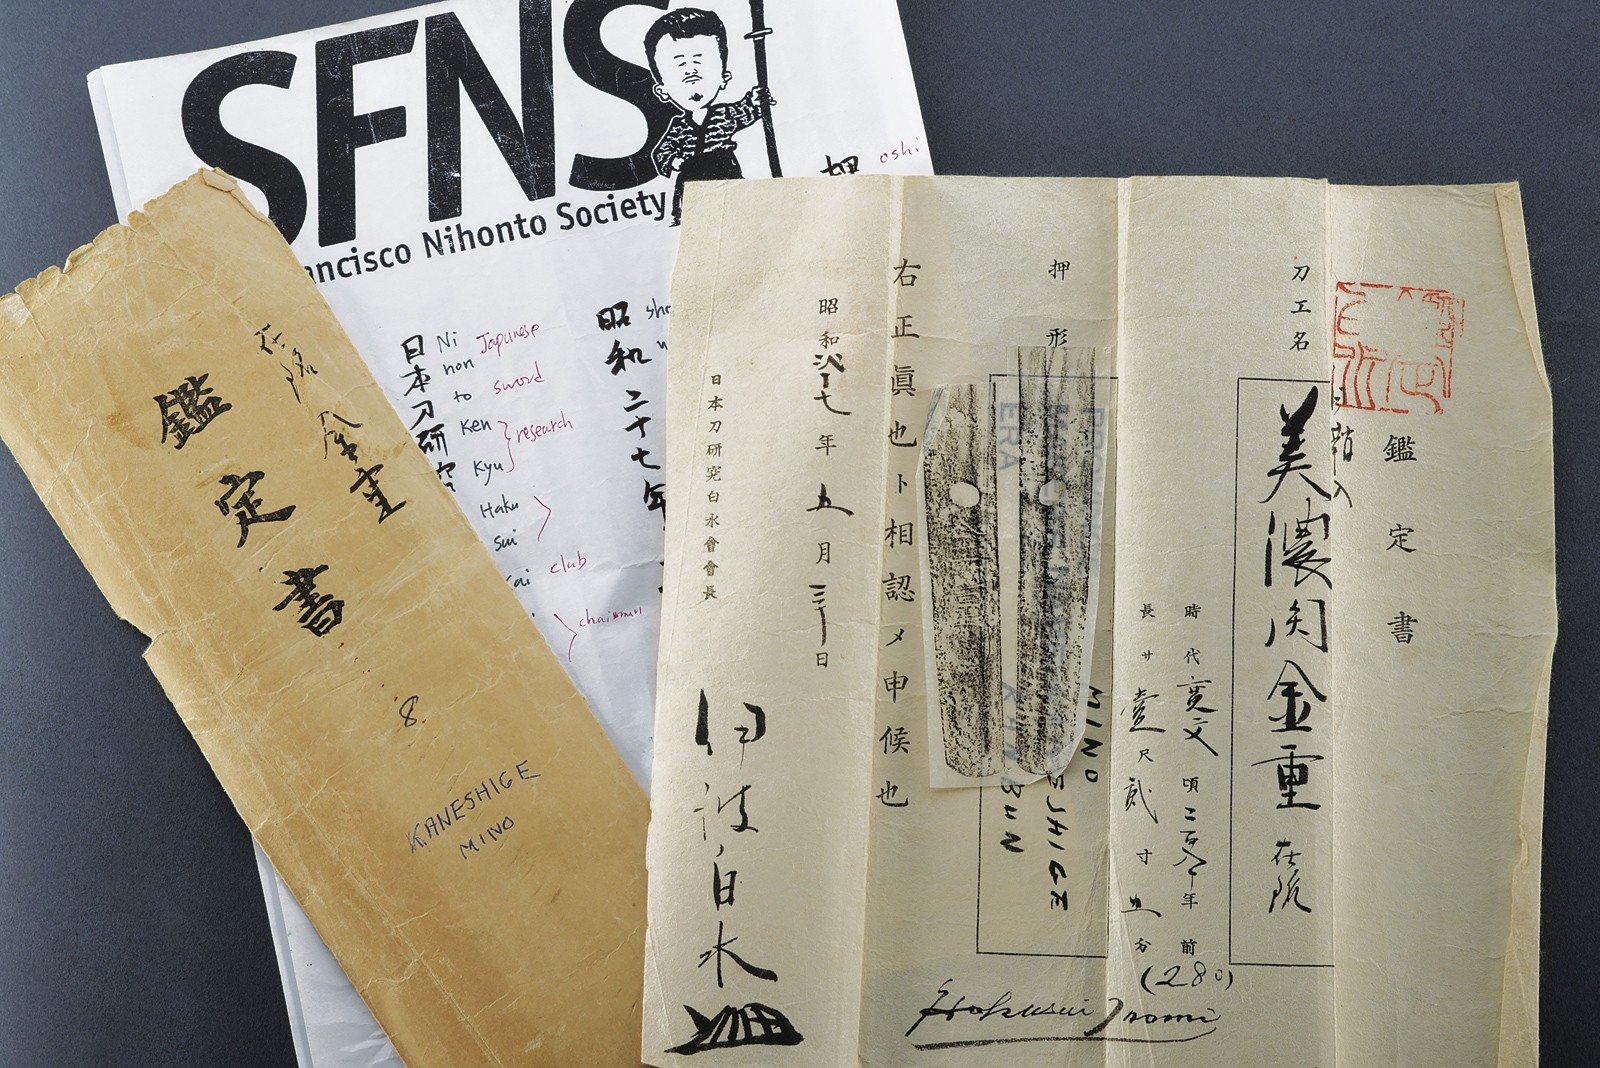 SFNS
ancisco Nihonto Society
押 oshi
日本刀研究
Ni
non
to
Ken
Kyu
Haku
Sui
Kai
Japanese
sword
research
club
chairman
昭和二十七年
鑑定書
金重
8
KANESHIGE
MINO
鑑定書
刀工名
美濃関金重
時代寛文頃二百八十年前
長サ壹尺貳寸五分
(280)
押形
MINO
ESHIGE
BUN
ERA
右正眞也ト相認メ申候也
昭和廿七年五月三十日
日本刀研究白水會會長
伊波白水
Hakusui Inami